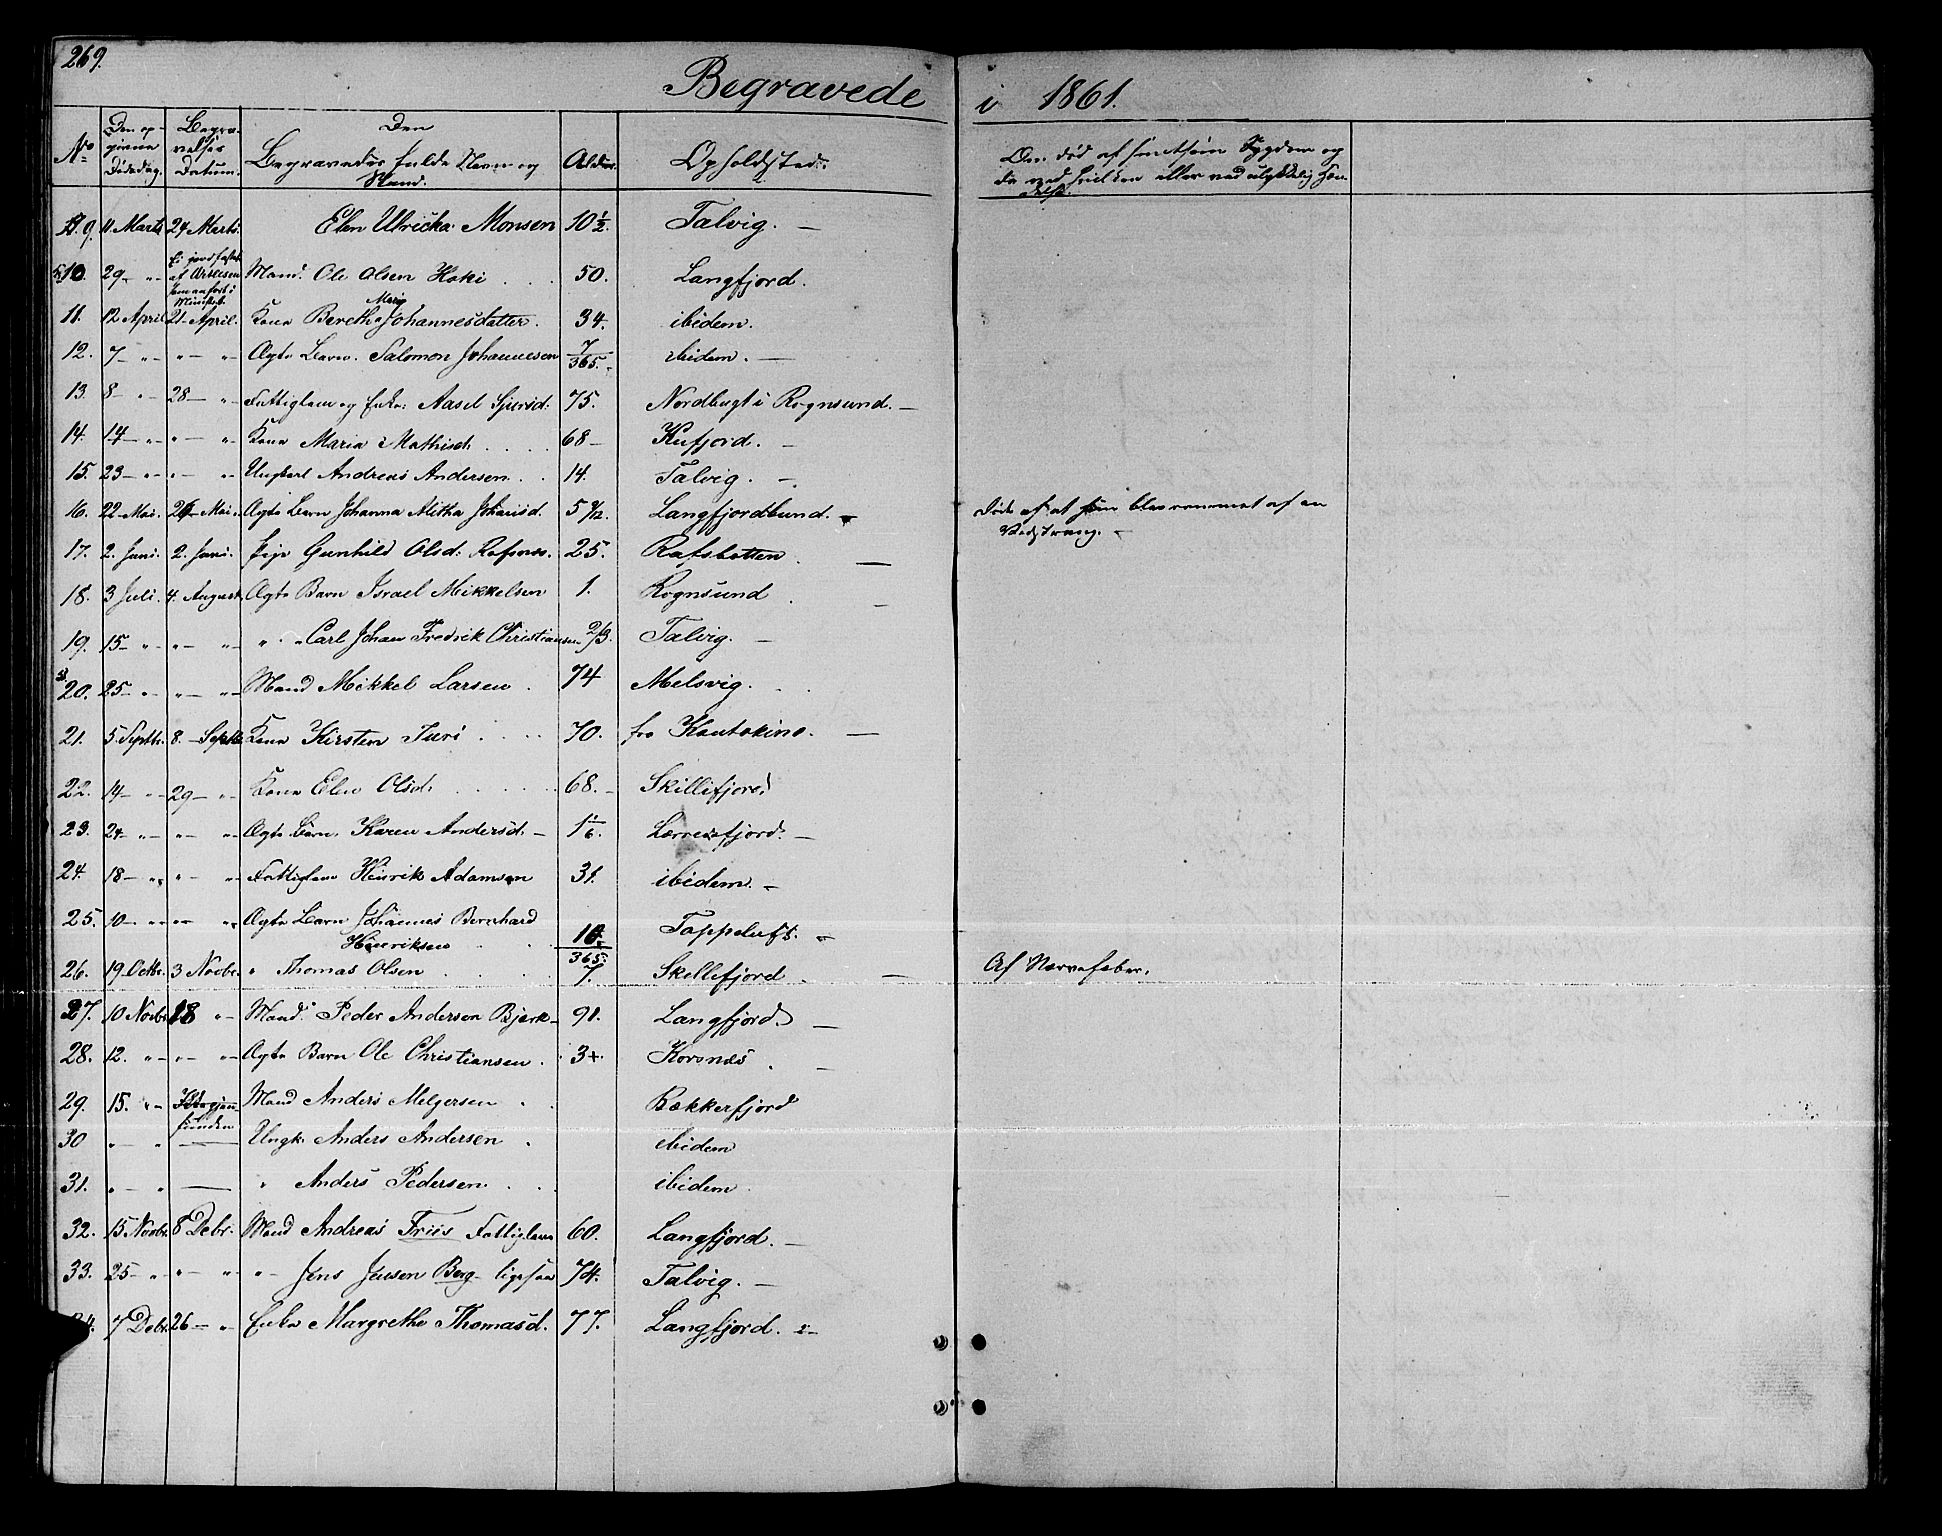 269.
Begravede i 1861.
No Den opgivne Dødsdag. Begravelses Datum. Den Begravedes fulde Navn og Stand. Alder. Opholdssted. Om død af smitsom Sygdom og da ved hvilken eller ved ulykkelig Hændelse.
9. 11 Marts 24 Marts. Elen Ulricka Monsen 10 1/2. Talvig. —
10 29 — " Ei jordfæstet af Mand Ole Olsen Koki . . . 50. Langfjord.
11. 12 April 21 April. Kone Berethe Marie Johannesdatter. 34. ibidem.
12. 7 — " " — " Ægte Barn. Salomon Johannesen 7/365. ibidem. —
13. 8 — " 28 — " Fattiglem og Enke: Aasel Sjursd. 75. Nordbugt i Rognsund. —
14. 14 — " " — " Kone Maria Mathisd. . . . . 68 — Kufjord. —
15. 23 — " " — " Ungkarl Andreas Andersen . . 14. Talvig. —
16. 22 Mai. 26 Mai. Ægte Barn Johanna Alitha Joharisd. 5 9/12. Langfjordbund. — Døde af at hun blev rammet af en Vedstrang. —
17. 2. Juni. 2. Juni. Pige Gunhild Olsd. 25. Rafsbotten . —
18. 3 Juli. 4. August. Ægte Barn Israel Mikkelsen 1. Rognsund . —
19. 15 — " " — " " " Carl Johan Fredrik Christiansen 2/3. Talvig. —
20. 25 — " " — " Mand Mikkel Larsen . 74 Melsvig.
21. 5. Septbr. 8. — Septbr Kone Kirsten Juri . . . 70. fra Kautokino. —
22. 14 — " 29 — " Kone Elen Olsd. . . . . . 68. — Skillifjord
23. 24 — " " — " Ægte Barn. Karen Andersd. — 1 1/6. Lerresfjord. —
24. 18 — " " — " Fattiglem Henrik Adamsen 31. ibidem. —
25. 10 — " " — " Ægte Barn Johannes Bernhard
Henriksen . . 14/365. Tappeluft. —
26. 19 Octbr. 3 Novbr. " Thomas Olsen . . . . 7. Skillefjord . — Af Nervefeber.
27. 10 Novbr. 18 " — Mand. Peder Andersen Bjerk — 91. Langfjord. —
28. 12. " — " — " Ægte Barn Ole Christiansen . 3 Korsnæs . —
29. 15. " — Ikke gjenfunden Mand Anders Melgersen . . Bækkerfjord
30 " " — Ungk. Anders Andersen . ibidem
31. " " — " Anders Pedersen . . . ibidem
32. 15 Novbr. 8 Debr. Mand Andreas Friis Fattiglem 60. Langfjord. —
33. 25 — " " — " " Jens Jensen Berg — ligesaa 74. Talvig. —
34. 7 Debr. 26 — " Enke Margrethe Thomasd. 77. Langfjord. —